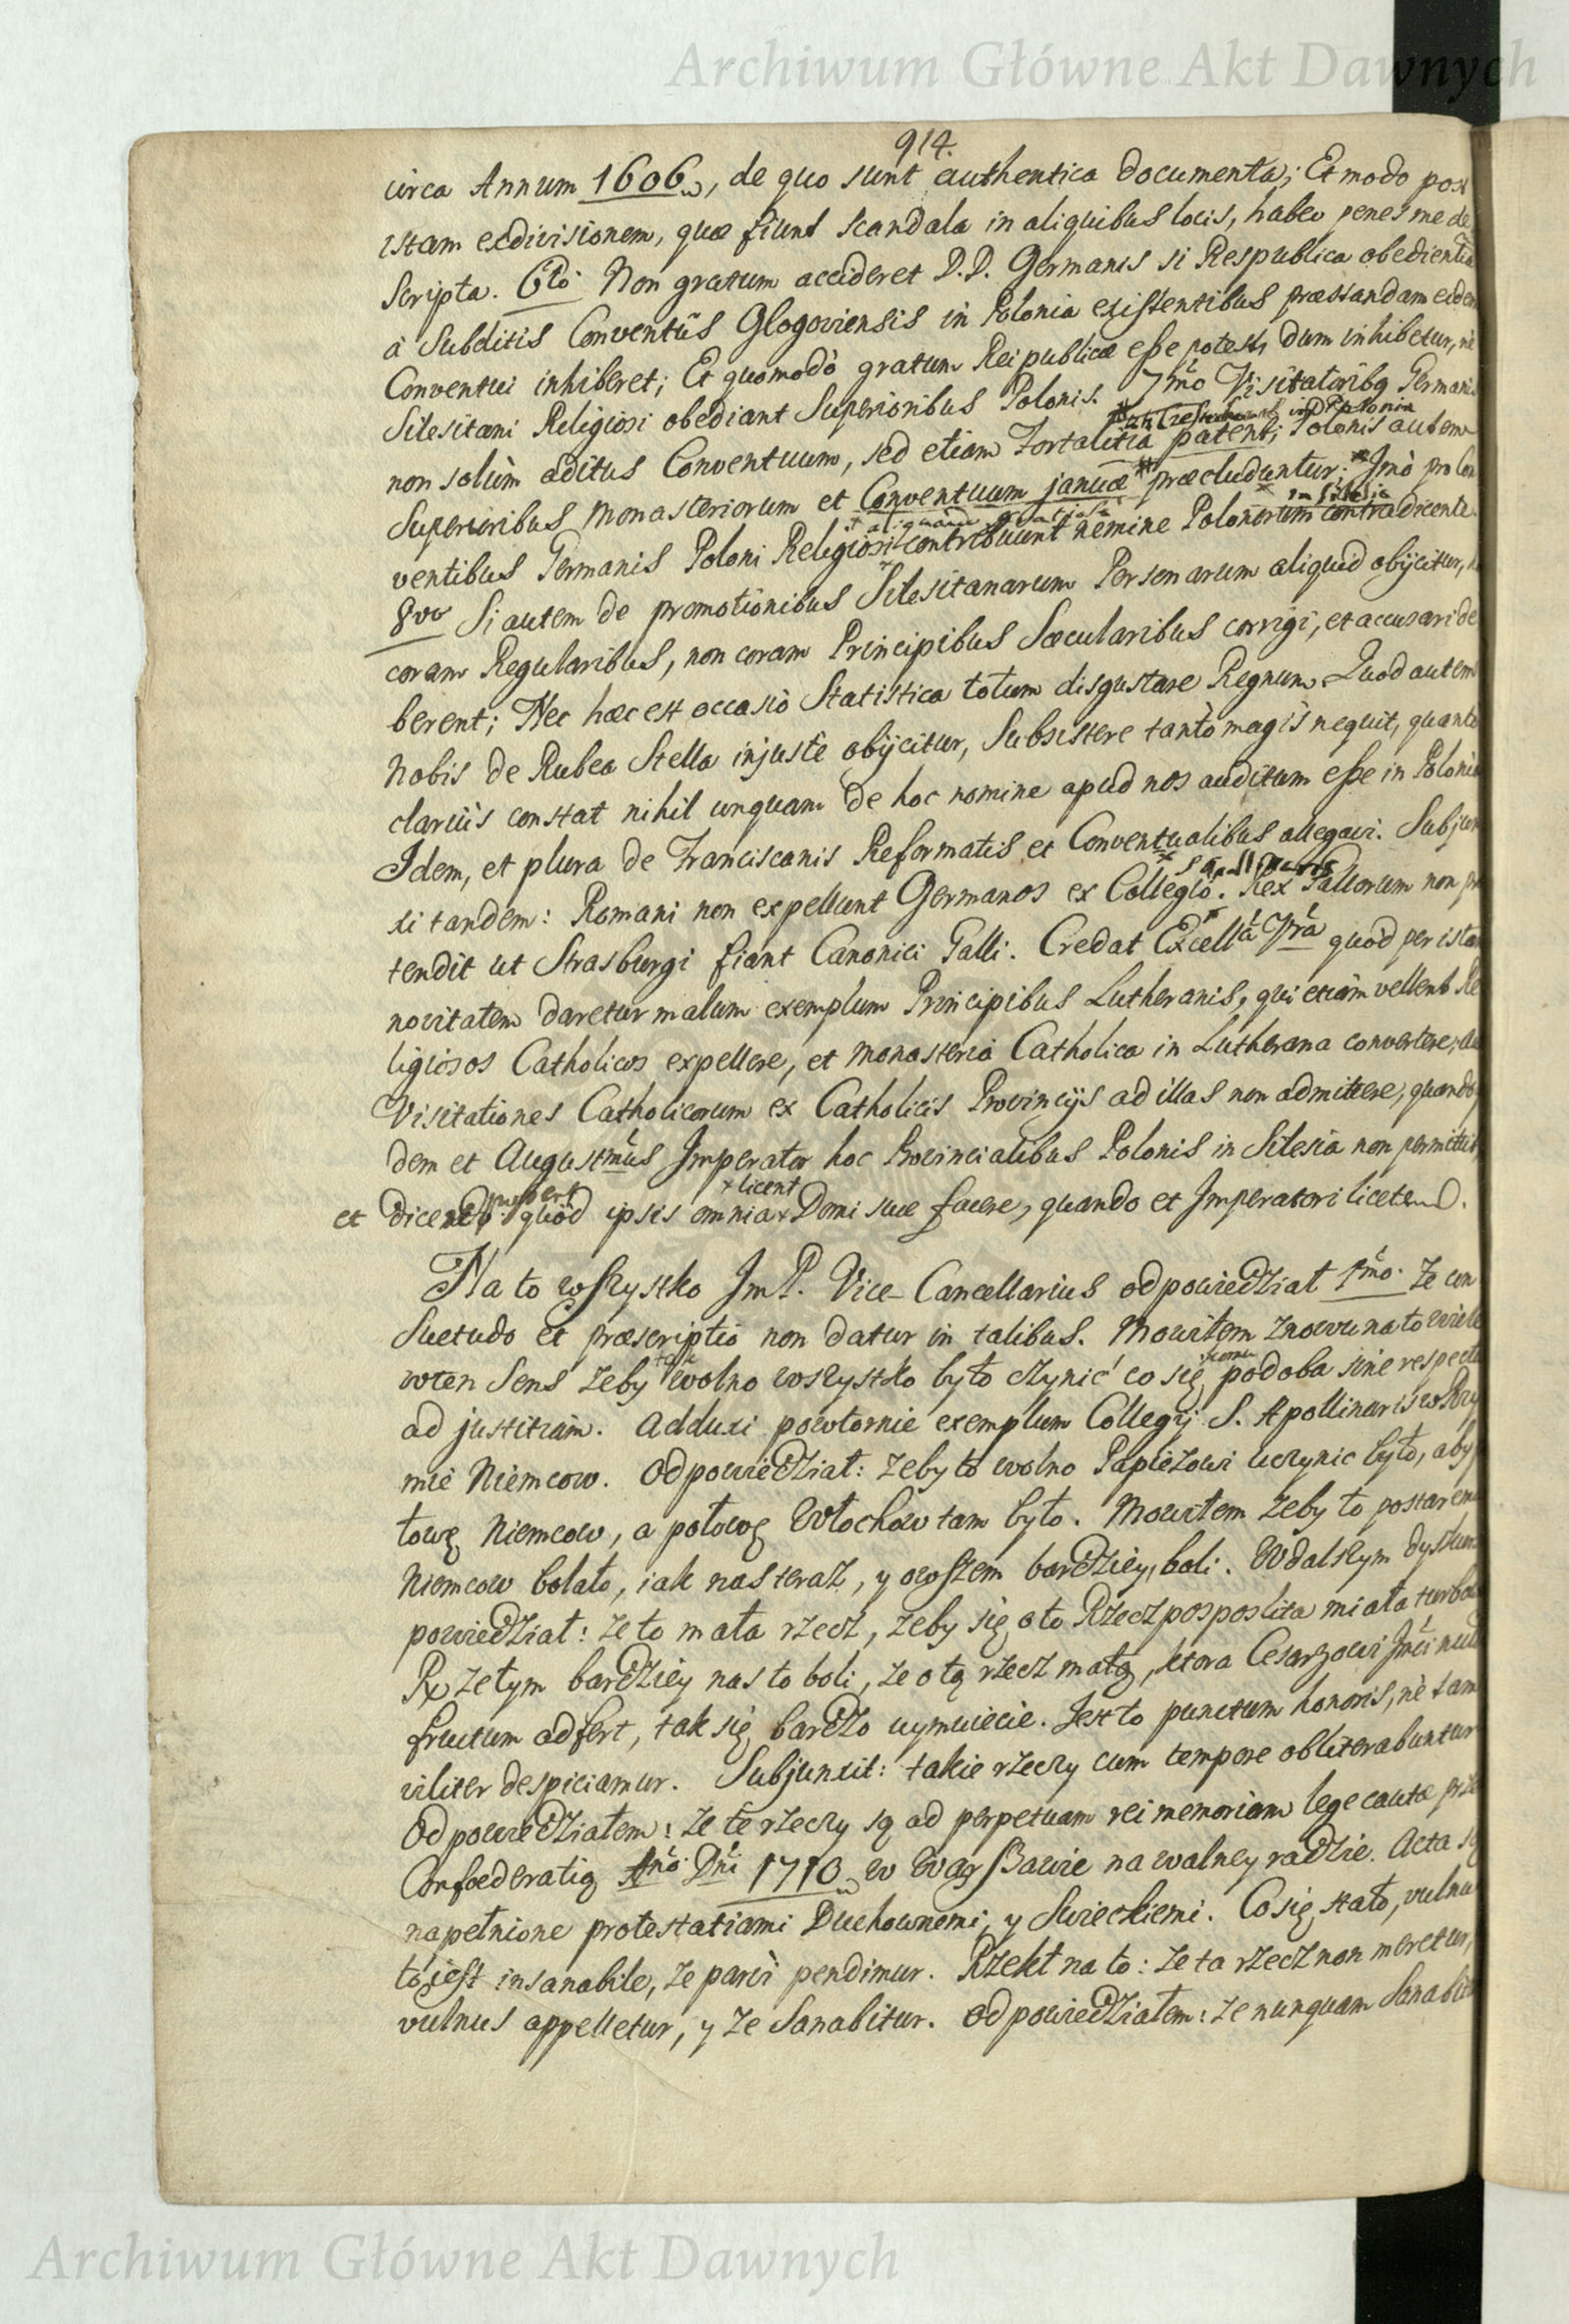 Archiwum Główne Akt Dawnych
914.
circa Annum 1606, de quo sunt authentica documenta; Et modo post
istam exdivisionem, quæ fiunt scandala in aliquibus locis, habeo penes me de
scripta. 6to Non gratum accideret D.D. Germanis si Respublica obedientia
à Subditis Conventûs Glogoviensis in Polonia existentibus præstandam eidem
Conventui inhiberet; Et quomodò gratum Reipublicæ esse potest, dum inhibetur, nè
Silesitani Religiosi obediant Superioribus Polonis. 7mo Visitatoribq Germanis
non solùm aditus Conventuum, sed etiam Fortalitia patent; Polonis autem
Superioribus Monasteriorum et Conventuum januæ præcluduntur; Imò pro Con
in Silesia
aliquando
ventibus Germanis Poloni Religiosi contribuunt nemine Polonorum contradicente.
8vo Si autem de promotionibus Silesitanarum Personarum aliquid objicitur,
coram Regularibus, non coram Principibus Sæcularibus corrigi, et accusari de
berent; Nec hæc est occasiò Statistica totum disgustare Regnum. Quod autem
Nobis de Rubea Stella injustè objicitur, Subsistere tantò magìs nequit, quantò
clariùs constat nihil unquam de hoc nomine apud nos auditum esse in Polonia
Idem, et plura de Franciscanis Reformatis et Conventualibus allegavi. Subjun
S. Apollinaris
xi tandem: Romani non expellunt Germanos ex Collegiò. Rex Gallorum non præ
tendit ut Strasburgi fiant Canonici Galli. Credat Excellâ Vra quòd per istam
novitatem daretur malum exemplum Principibus Lutheranis, qui etiam vellent Re
ligiosos Catholicos expellere, et monasteria Catholica in Lutherana convertere, ac
Visitationes Catholicorum ex Catholicis Provincijs ad illas non admittere, quando qui
dem et Augustmus Imperator hoc Provincialibus Polonis in Silesia non permittit
licent
et dicendo quòd ipsis omnia Domi suæ facere, quando et Imperatori licet.
Na to wszystko JmP. Vice-Cancellarius odpowiedział 1mo. Ze con
suetudo et præscriptio non datur in talibus. Mowiłem znowu na to wiele
tak
komu
w ten Sens zeby wolno wszystko było czynić co się podoba sine respectu
ad justitiam. Adduxi powtornie exemplum Collegij S. Apollinaris w Rzy
mie Niemcow. Odpowiedział: zeby to wolno Papieżowi uczynic było, aby po
łowę Niemcow, a połowę Włochow tam było. Mowiłem zeby to postaremu
Niemcow bolało, iak nas teraz, y owszem bardziey boli. W dalszym dyskursie
powiedział: ze to mała rzecz, zeby się o to Rzeczpospolita miała turbować
Rx ze tym bardziey nas to boli, ze o tą rzecz małą, ktora Cesarzowi Jmci nullum
fructum adfert, tak się bardzo uymuiecie. Jest to punctum honoris, nè tam
viliter despiciamur. Subjunxit: takie rzeczy cum tempore obliterabuntur
Odpowiedziałem: ze te rzeczy są ad perpetuam rei memoriam lege cautæ przez
Confoederatią Anò Dni 1710 w Warszawie na walney radzie. Acta są
napełnione protestatiami Duchownemi, y Swieckiemi. Co się stało, vulnus
to jest insanabile, ze parvi pendimur. Rzekł na to: ze ta rzecz non meretur,
vulnus appelletur, y ze Sanabitur. Odpowiedziałem: ze nunquam Sanabitur
Archiwum Główne Akt Dawnych